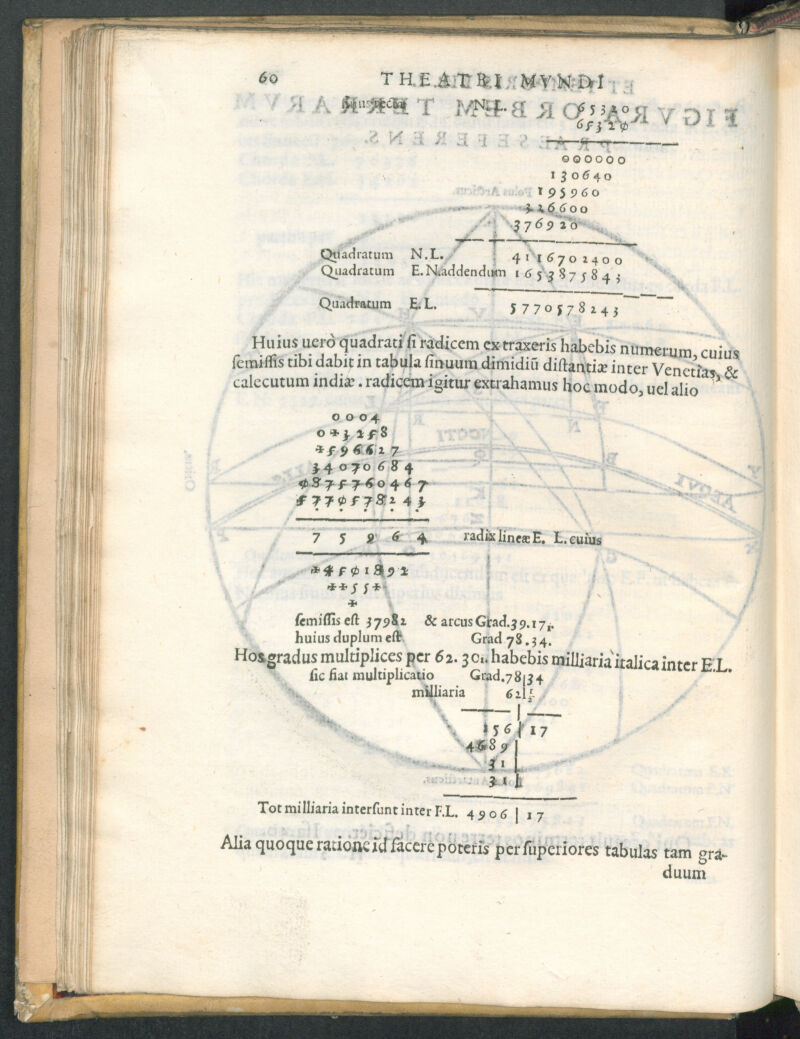 60 THEATRI MVNDI
N.L. 65320
65320
000000
130640
195960
326600
376920
Quadratum N.L. 4116702400
Quadratum E.N.addendum 1653875843
Quadratum E.L. 5770578243
Huius uero quadrati si radicem extraxeris habebis numerum, cuius
semissis tibi dabit in tabula sinuum dimidiũ distantiæ inter Venetias, &
calecutum indiæ. radicem igitur extrahamus hoc modo, uel alio
0004
0+3258
+596627
34070684
0875760467
5770578243
7 5 9 6 4 radix lineæ E. L. cuius
+4501892
++55+
+
semissis est 37982 & arcus Grad.39.17
huius duplum est Grad 78.34.
Hos gradus multiplices per 62. 30. habebis milliaria italica inter E.L.
sic fiat multiplicatio Grad.78|34
milliaria 62|
156|17
4689|
31|
31|
Tot milliaria intersunt inter F.L. 4906|17
Alia quoque ratione id facere poteris per superiores tabulas tam gra-
duum